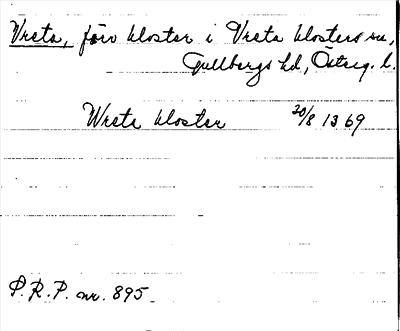 Vreta, förv kloster i Vreta klosters sn,
Gullbergs hd, Österg. l.
Wreta kloster 20/8 1369
P.R.P. nr. 895